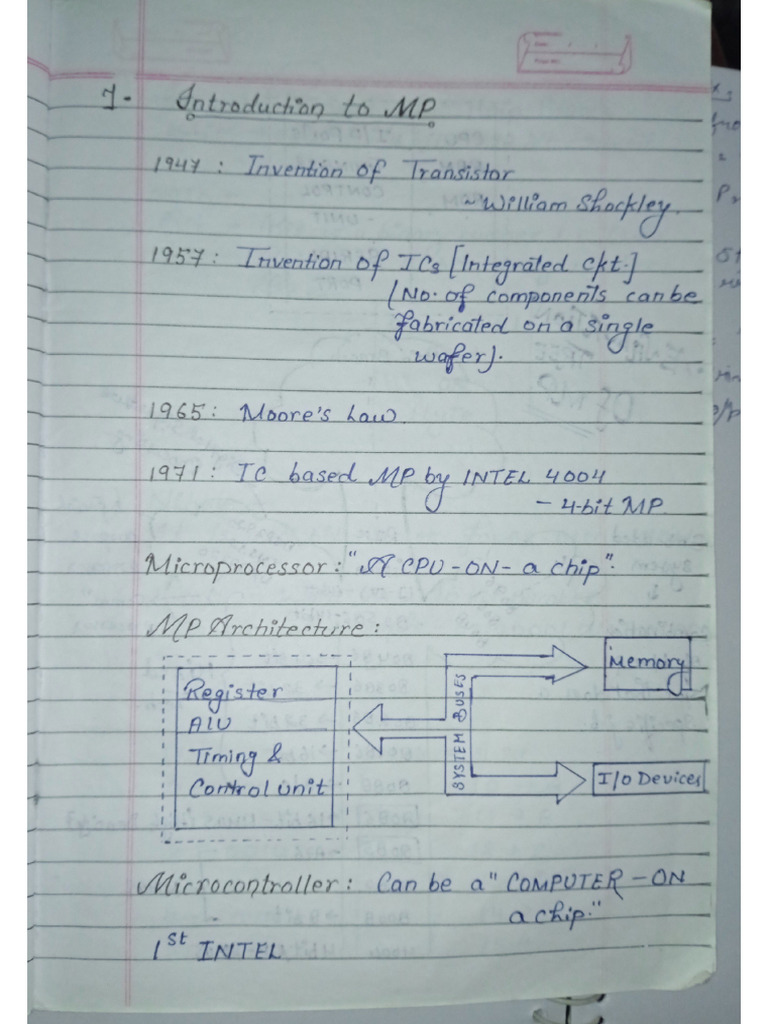 1- Introduction to MP
1947: Invention of Transistor
~William Shockley.
1957: Invention of ICs [Integrated ckt.]
(No. of components can be
fabricated on a single
wafer).
1965: Moore's Law.
1971: IC based MP by INTEL 4004
- 4-bit MP
Microprocessor: "A CPU-ON-a chip".
MP Architecture:
Register
ALU
Timing &
Control unit
SYSTEM BUSES
Memory
I/O Devices
Microcontroller: Can be a "COMPUTER-ON
a chip."
1st INTEL